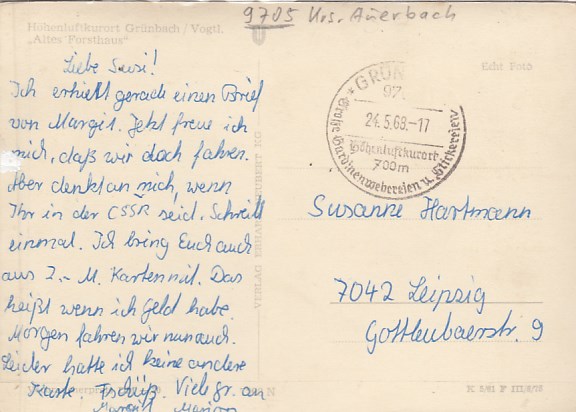 9705 Krs. Auerbach
Höhenluftkurort Grünbach / Vogtl.
„Altes Forsthaus“
Echt Foto
Liebe Susi!
Ich erhielt gerade einen Brief
von Margit. Jetzt freue ich
mich, daß wir doch fahren.
Aber denkt an mich, wenn
Ihr in der CSSR seid. Schreibt
einmal. Ich bring Euch auch
aus Z.- M. Karten mit. Das
heißt wenn ich Geld habe.
Morgen fahren wir nun auch.
Leider hatte ich keine andere
Karte. Tschüß. Viele gr. an
GRÜN
97
24.5.68.-17
Höhenluftkurort
700m
Große Gardinenwebereien u. Stickereien
VERLAG ERHARD NEUBERT KG
Susanne Hartmann
7042 Leipzig
Gottleubaerstr. 9